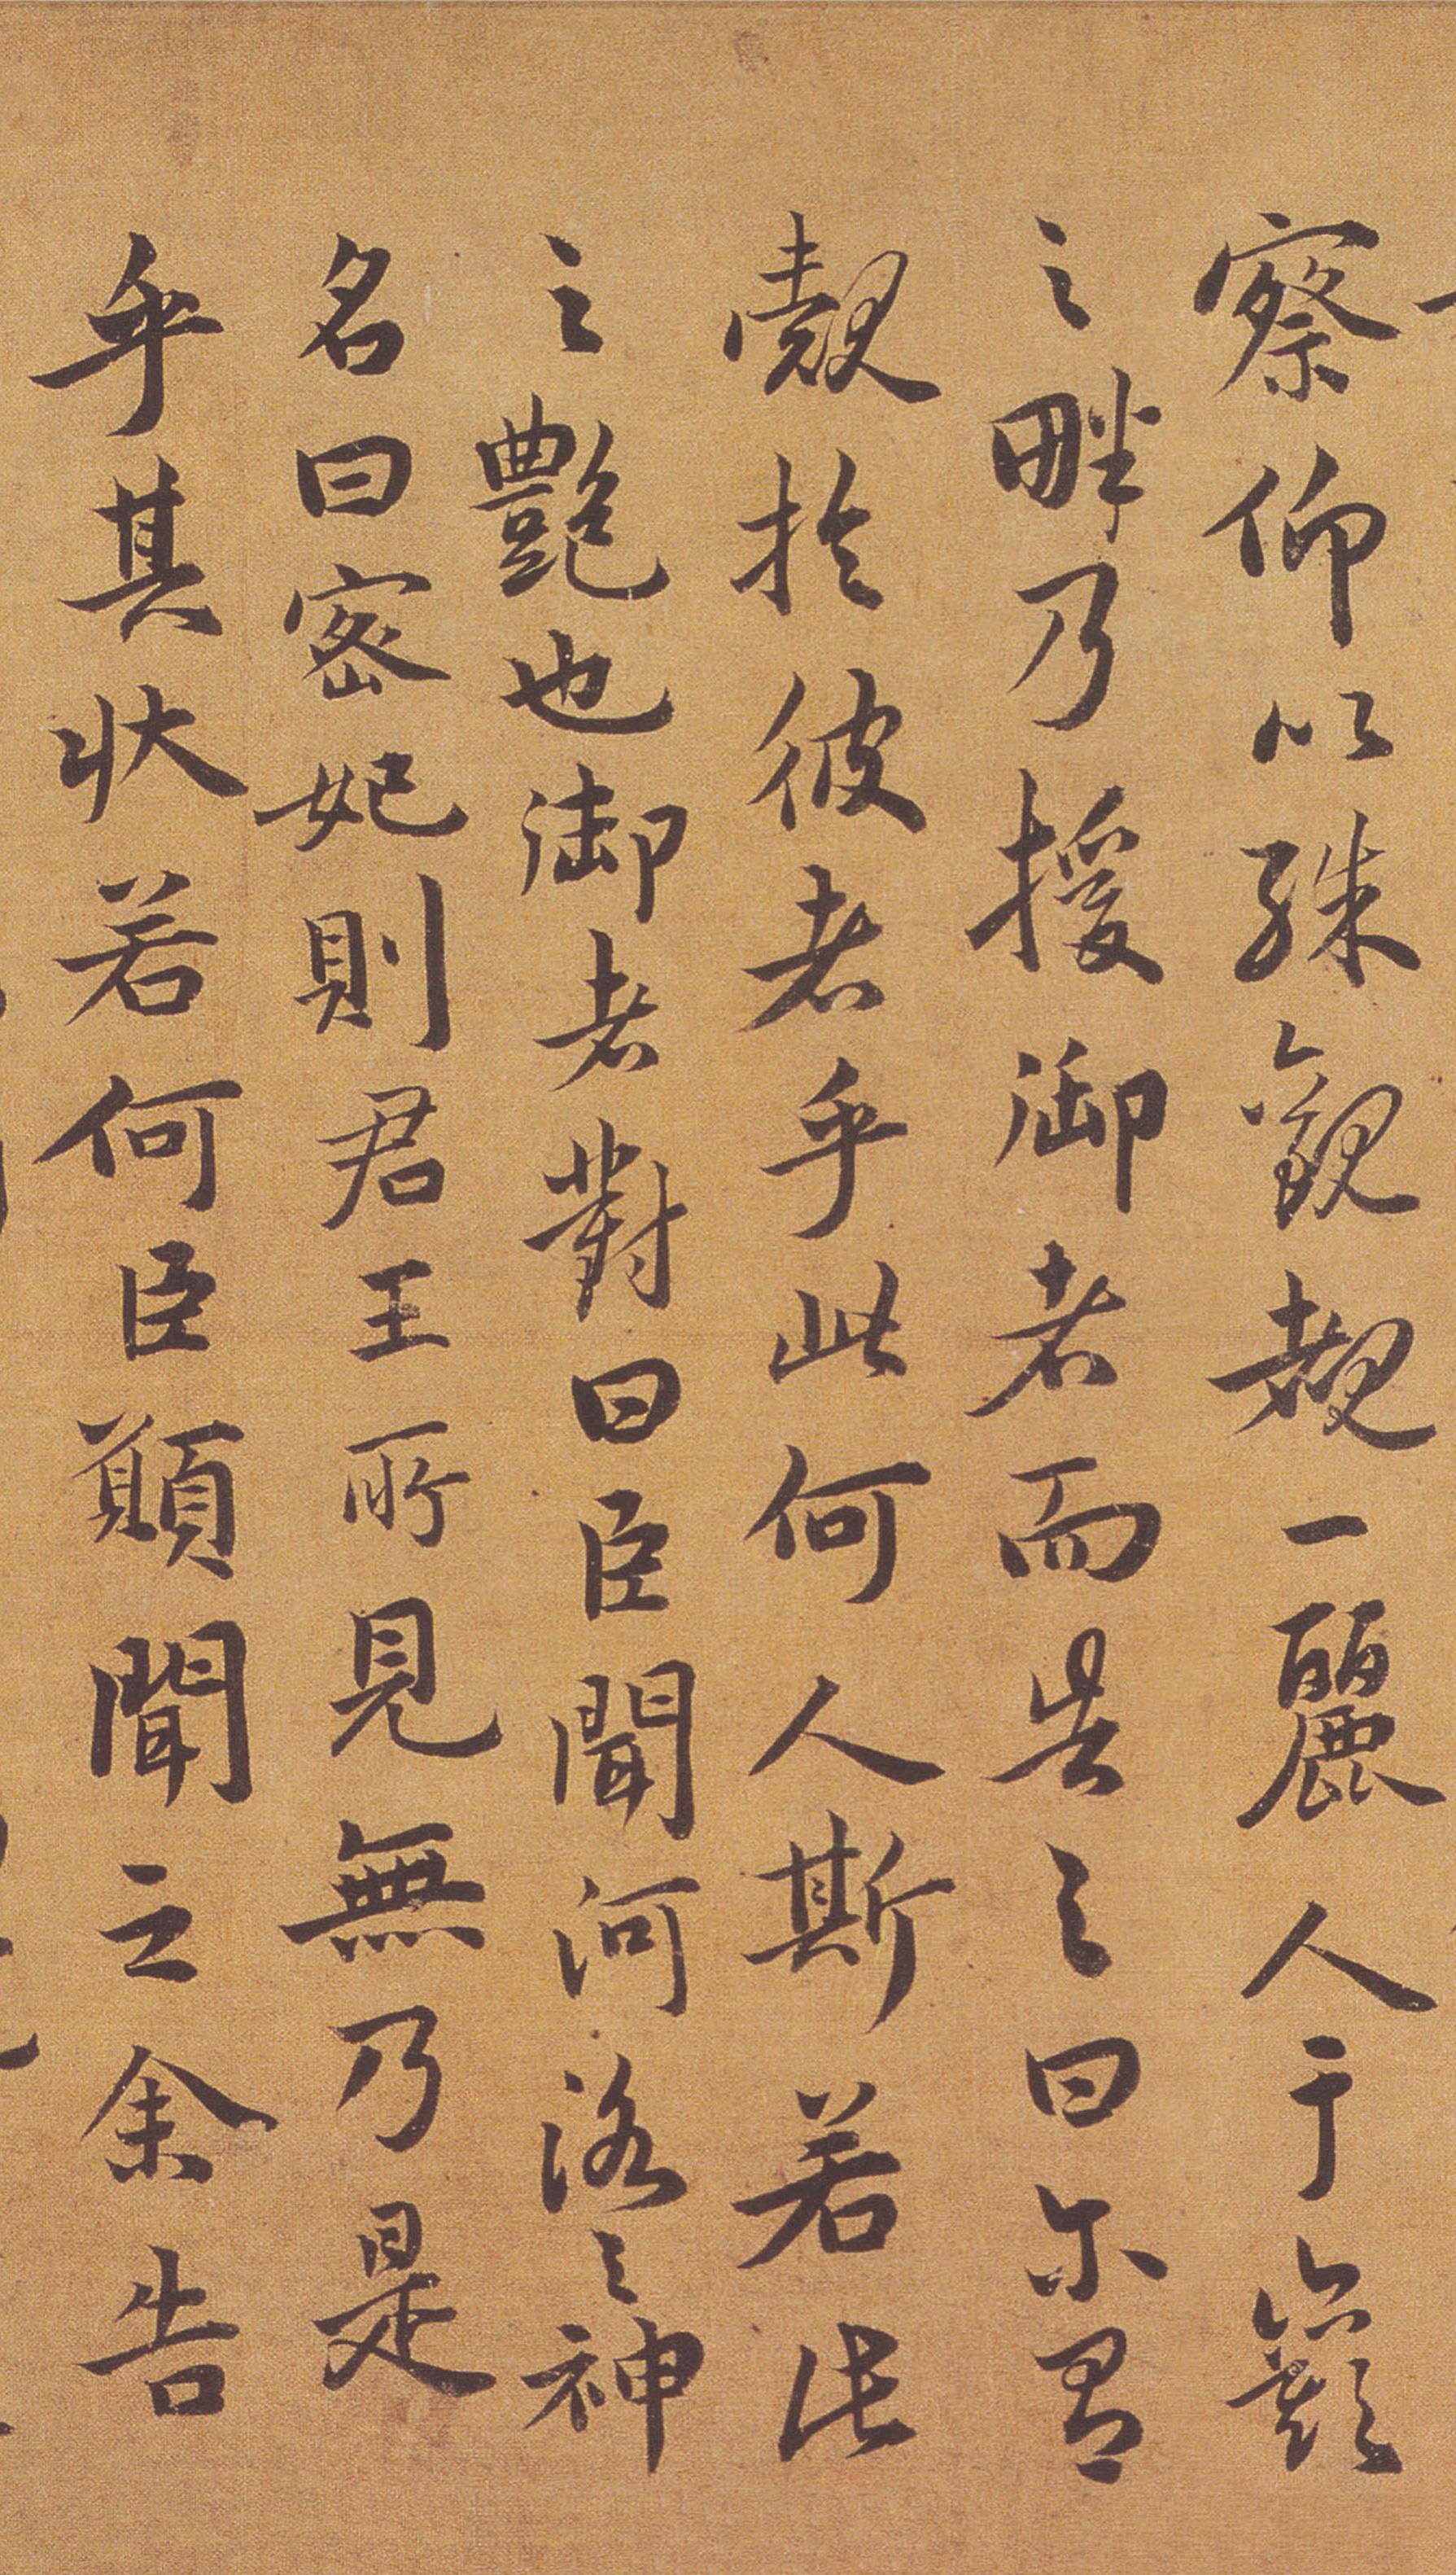 察仰以殊觀覩一麗人于巖
之畔乃援御者而告之曰尔有
覿於彼者乎此何人斯若此
之艷也御者對曰臣聞河洛之神
名曰密妃則君王所見無乃是
乎其狀若何臣願聞之余告